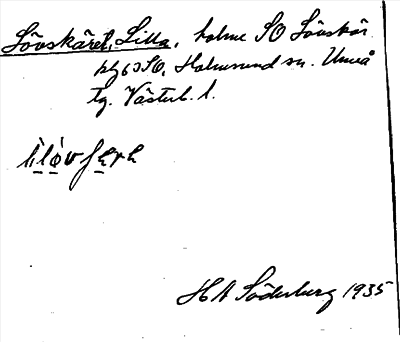 Lövskäret, Lilla, holme SO Lövskär
bl 63 SO, Holmsund sn. Umeå
tg. Västerb. l.
H A Söderberg 1935